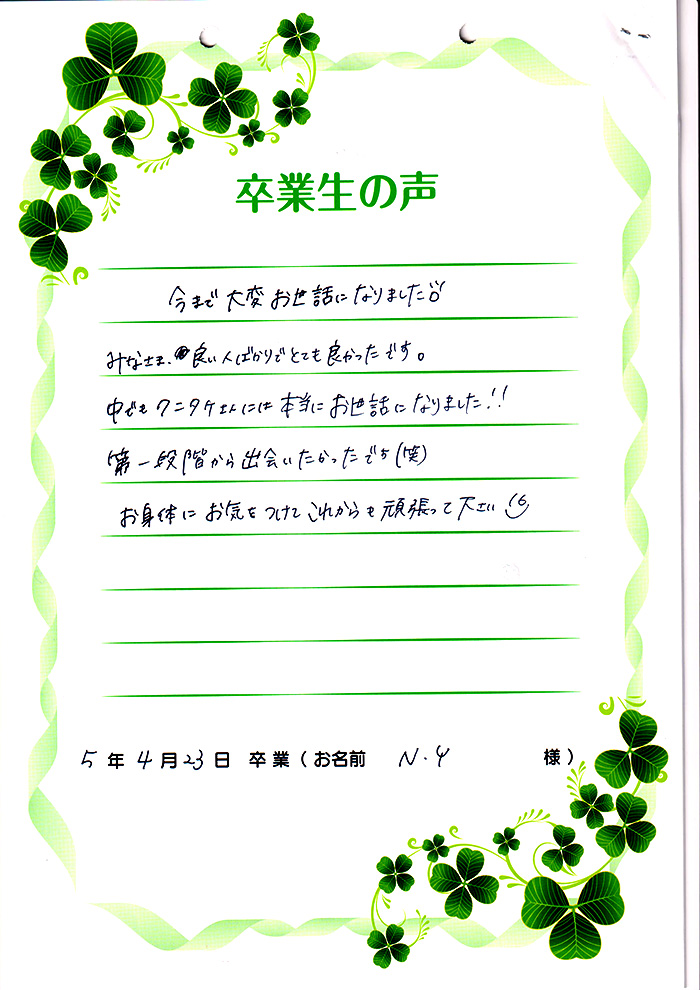 卒業生の声
今まで大変お世話になりました
みなさま、良い人ばかりでとても良かったです。
中でもクニタケさんには本当にお世話になりました!!
第一段階から出会いたかったです(笑)
お身体にお気をつけてこれからも頑張って下さい
5年4月23日 卒業(お名前 N.Y 様)